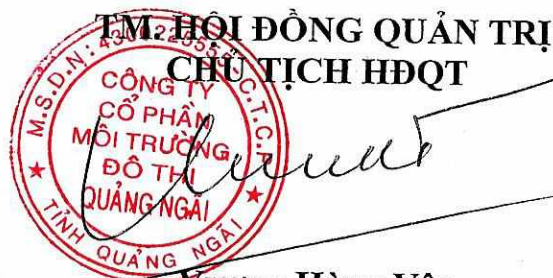 TM. HỘI ĐỒNG QUẢN TRỊ
CHỦ TỊCH HĐQT
M.S.D.N: C.T.C.P
CÔNG TY
CỔ PHẦN
MÔI TRƯỜNG
ĐÔ THỊ
QUẢNG NGÃI
TỈNH QUẢNG NGÃI